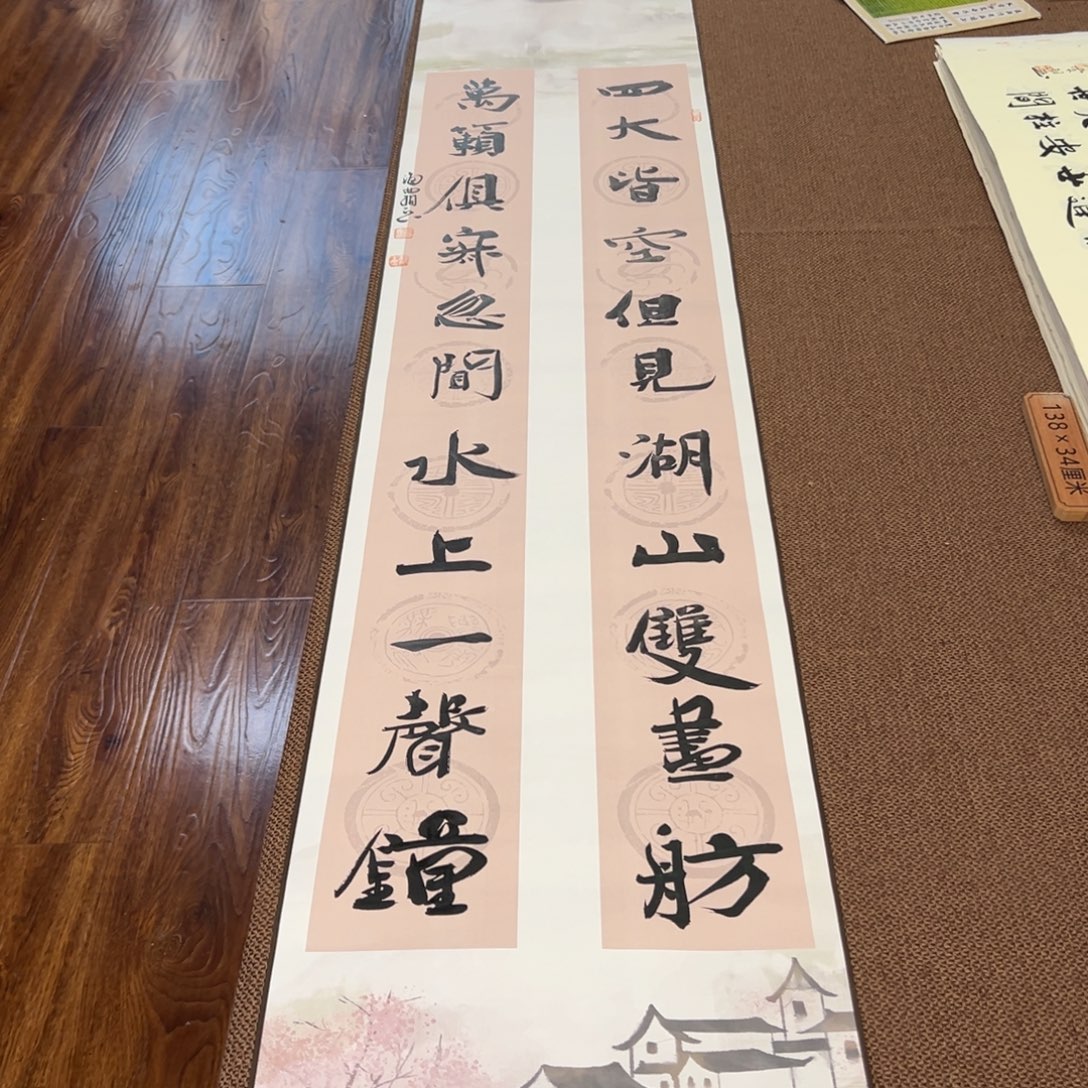 四大皆空但見湖山雙畫舫
萬籟俱寂忽聞水上一聲鐘
138×34厘米